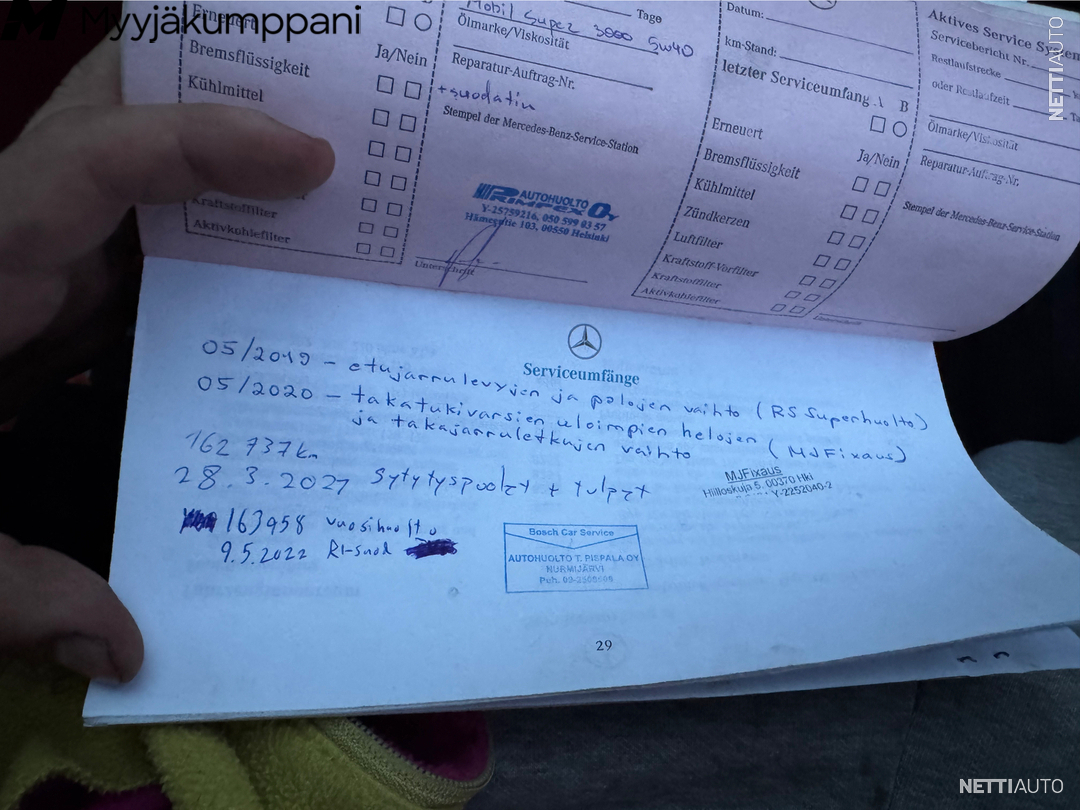 Myyjäkumppani
NETTIAUTO
Erneuert
Bremsflüssigkeit
Ja/Nein
Kühlmittel
Kraftstofffilter
Aktivkohlefilter
Tage
Mobil Super 3000 5W40
Ölmarke/Viskosität
Reparatur-Auftrag-Nr.
+suodatin
Stempel der Mercedes-Benz-Service-Station
PRIMPEX AUTOHUOLTO Oy
Y-25759216, 050 599 03 57
Hämeentie 103, 00550 Helsinki
Unterschrift
Datum:
km-Stand:
letzter Serviceumfang A B
Erneuert
Ja/Nein
Bremsflüssigkeit
Kühlmittel
Zündkerzen
Luftfilter
Kraftstoff-Vorfilter
Kraftstofffilter
Aktivkohlefilter
Aktives Service System
Servicebericht Nr.
Restlaufstrecke
oder Restlaufzeit
Ölmarke/Viskosität
Reparatur-Auftrag-Nr.
Stempel der Mercedes-Benz-Service-Station
Unterschrift
Serviceumfänge
05/2019 – etujarrulevyjen ja palojen vaihto (RS Superhuolto)
05/2020 – takatukivarsien uloimpien helojen
ja takajarruletkujen vaihto (MJFixaus)
162 737km
28.3.2021 Sytytyspuolat + tulpat
MJFixaus
Hiilloskuja 5, 00370 Hki
Y-2252040-2
163958 vuosihuolto
9.5.2022 RI-suod
Bosch Car Service
AUTOHUOLTO T. PISPALA OY
NURMIJÄRVI
29
NETTIAUTO